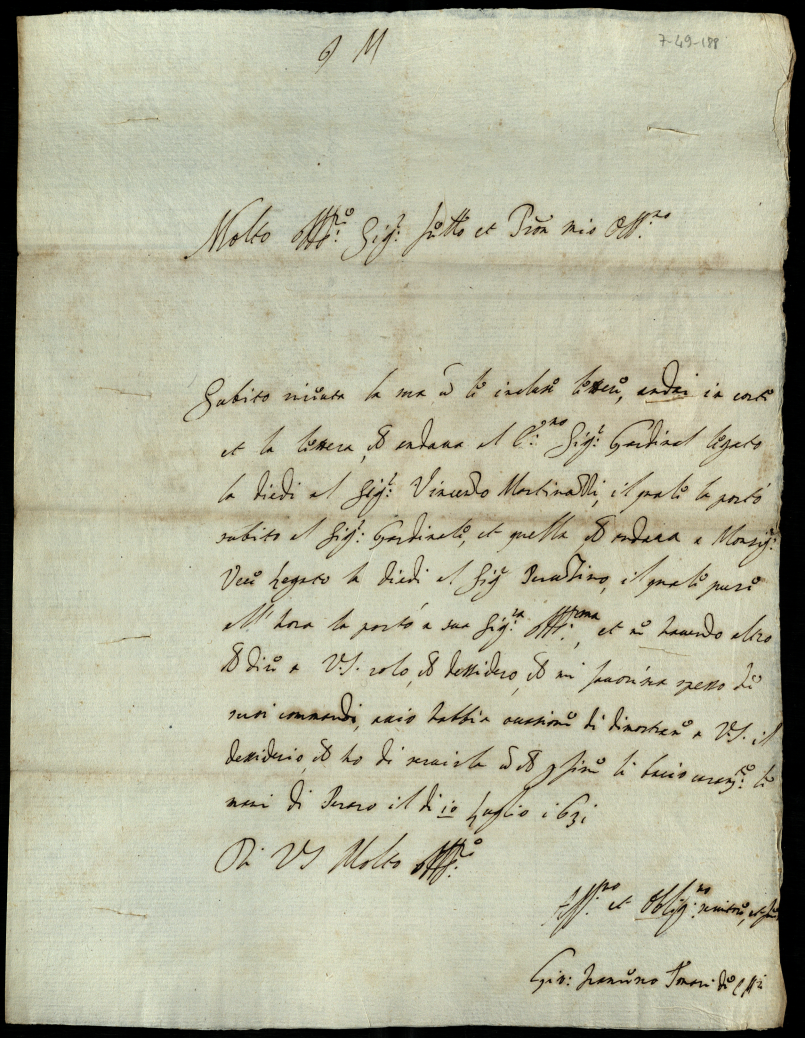 7-49-188
Molto Ill.re Sig.r et Pron mio Oss.mo
Subito riceuta la sua le incluse lettere, andai in corte
et la lettera, ch andaua al E.mo Sig.r Cardinal legato
la diedi al Sig.r Vincenzo Martinozzi, il quale la portò
subito al Sig.r Cardinale, et quella ch andaua a Monsig.r
Vice Legato la diedi al Sig.r, il quale pure
all'hora la portò a sua Sig.ria Ill.ma, et nō hauendo altro
ch dire a V.S. solo, ch dessidero, ch mi fauorisca spesso de
suoi commandi, acio habbia occasione di dimostrare a V.S. il
dessiderio, ch ho di seruirla li bacio le
mani di Pesaro il di 10 Luglio 1631
Di VS Molto Ill.re
Aff.mo et Oblig.mo seruitore, et
Gio: Francesco